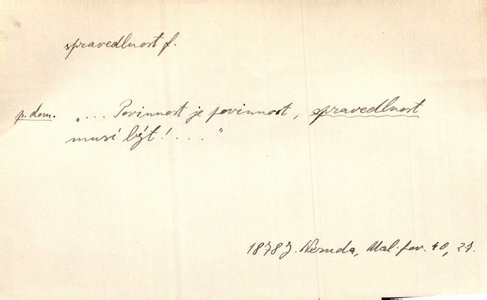 spravedlnost f.
p. dom. „... Povinnost je povinnost, spravedlnost
musí být! ...“
1878 J. Neruda, Mal. pov. 40, 21.